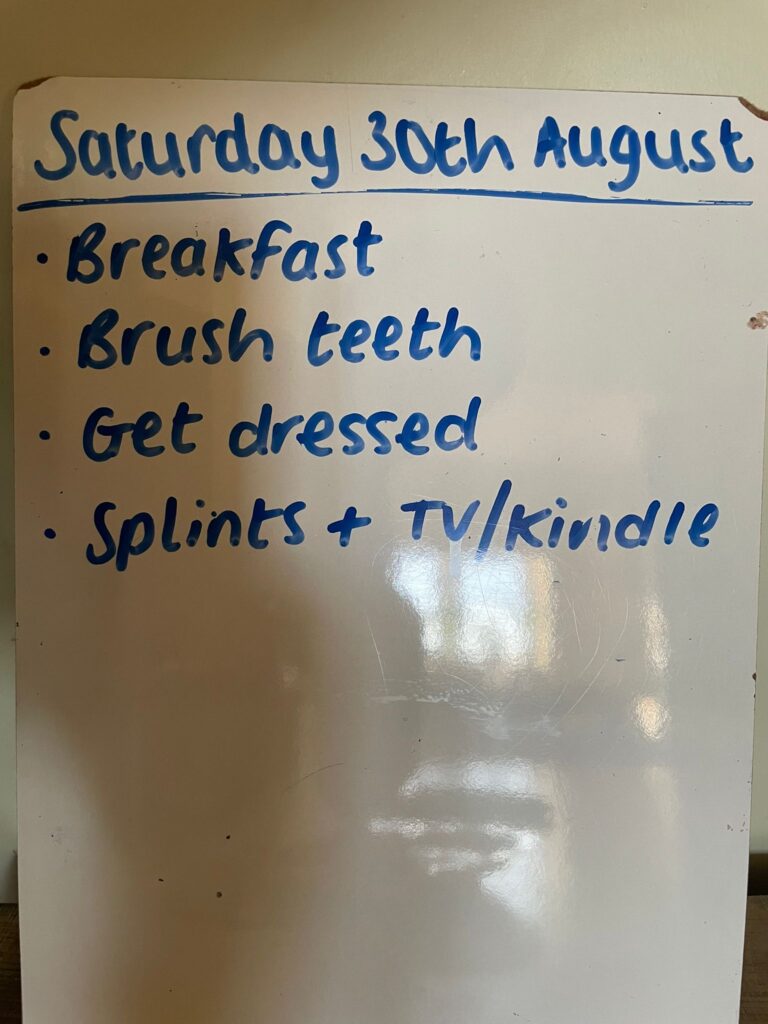 Saturday 30th August
· Breakfast
· Brush teeth
· Get dressed
· Splints + TV/Kindle